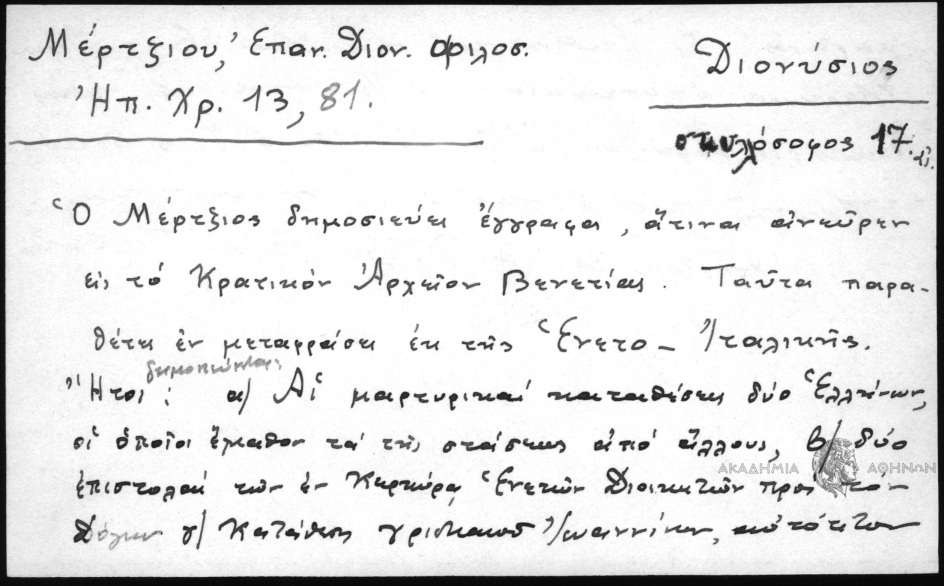 Μέρτζιου, Ἐπαν. Διον. φιλοσ.
Ἠπ. Χρ. 13, 81.
Διονύσιος
σκυλόσοφος 17. αἰ.
Ὁ Μέρτζιος δημοσιεύει ἔγγραφα, ἅτινα ἀνεῦρεν
εἰς τό Κρατικόν Ἀρχεῖον Βενετίας. Ταῦτα παρα-
θέτει ἐν μεταφράσει ἐκ τῆς Ἑνετο-Ἰταλικῆς.
δημοσιεύονται
Ἤτοι: α) Αἱ μαρτυρικαί καταθέσεις δύο Ἑλλήνων,
οἱ ὁποῖοι ἔμαθον τά τῆς στάσεως ἀπό ἄλλους, β) δύο
ΑΚΑΔΗΜΙΑ ΑΘΗΝΩΝ
ἐπιστολαί τῶν ἐν Κερκύρᾳ Ἑνετῶν Διοικητῶν πρός τόν
Δόγην γ) Κατάθεσις Ἰωαννίνων, αὐτόπτου